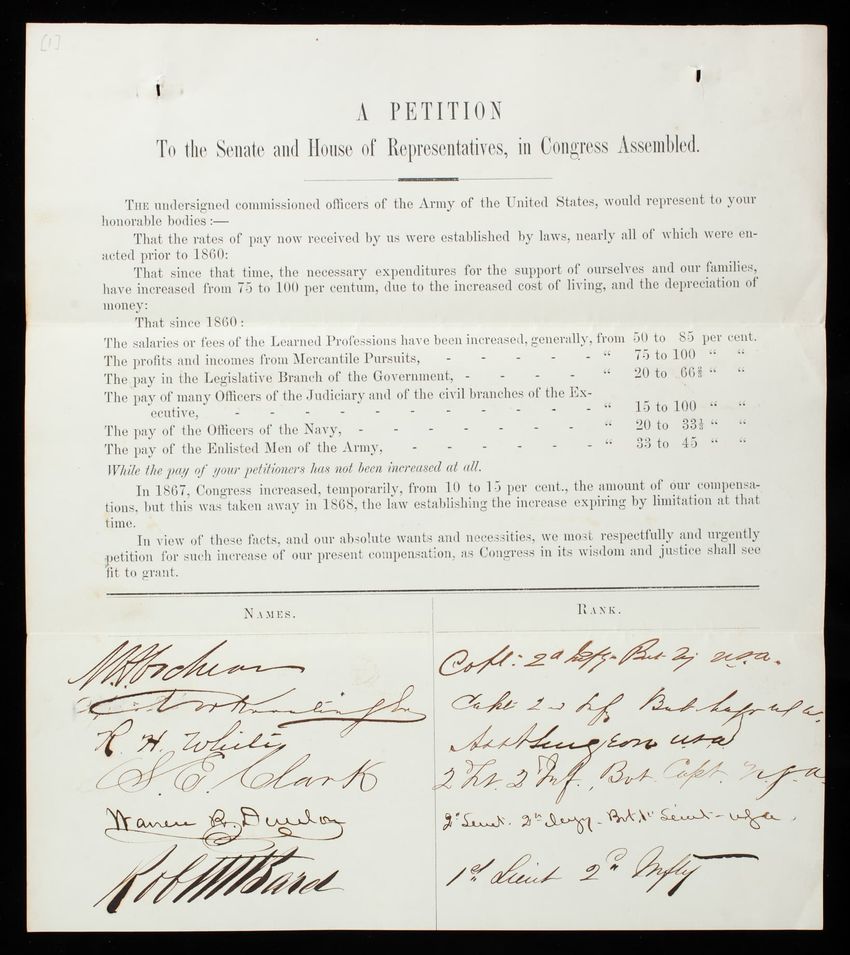 [1]
A PETITION
To the Senate and House of Representatives, in Congress Assembled.
THE undersigned commissioned officers of the Army of the United States, would represent to your
honorable bodies :—
That the rates of pay now received by us were established by laws, nearly all of which were en-
acted prior to 1860:
That since that time, the necessary expenditures for the support of ourselves and our families,
have increased from 75 to 100 per centum, due to the increased cost of living, and the depreciation of
money:
That since 1860:
The salaries or fees of the Learned Professions have been increased, generally, from 50 to 85 per cent.
The profits and incomes from Mercantile Pursuits, - - - - - " 75 to 100 " "
The pay in the Legislative Branch of the Government, - - - - - " 20 to 66⅔ " "
The pay of many Officers of the Judiciary and of the civil branches of the Ex-
ecutive, - - - - - - - - - - - - - " 15 to 100 " "
The pay of the Officers of the Navy, - - - - - - - " 20 to 33⅓ " "
The pay of the Enlisted Men of the Army, - - - - - - " 33 to 45 " "
While the pay of your petitioners has not been increased at all.
In 1867, Congress increased, temporarily, from 10 to 15 per cent., the amount of our compensa-
tions, but this was taken away in 1868, the law establishing the increase expiring by limitation at that
time.
In view of these facts, and our absolute wants and necessities, we most respectfully and urgently
petition for such increase of our present compensation, as Congress in its wisdom and justice shall see
fit to grant.
NAMES. RANK.
Capt: 2d Infy - Bvt Mj U.S.A.
Capt 2d Inf Bvt
R. H. White Asst Surgeon USA
S. E. Clark 2d Lt. 2d Inf., Bvt. Capt. U.S.A.
Warren R. Dunton 2d Lieut. 2d Infy - Bvt. 1st Lieut - USA.
1st Lieut 2d Infty